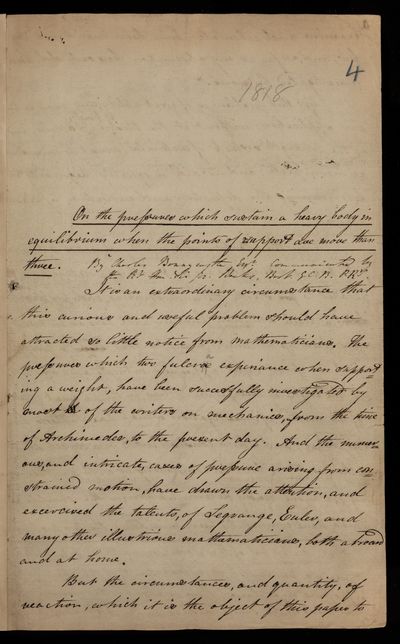 4
1818
On the pressures which sustain a heavy body in
equilibrium when the points of support are more than
three. By Charles Bonnycastle Esqr. Communicated by
the Rt. Hon. Sir Jos. Banks, Bart. G.C.B. P.R.S.
It is an extraordinary circumstance that
this curious and useful problem should have
attracted so little notice from mathematicians. The
pressures which two fulcra experience when support=
ing a weight, have been successfully investigated by
most of the writers on mechanics, from the time
of Archimedes, to the present day. And the numer-
ous, and intricate, cases of pressure arising from con-
strained motion, have drawn the attention, and
excercised the talents, of Legrange, Euler, and
many other illustrious mathematicians, both abroad
and at home.
But the circumstances, and quantity, of
reaction, which it is the object of this paper to